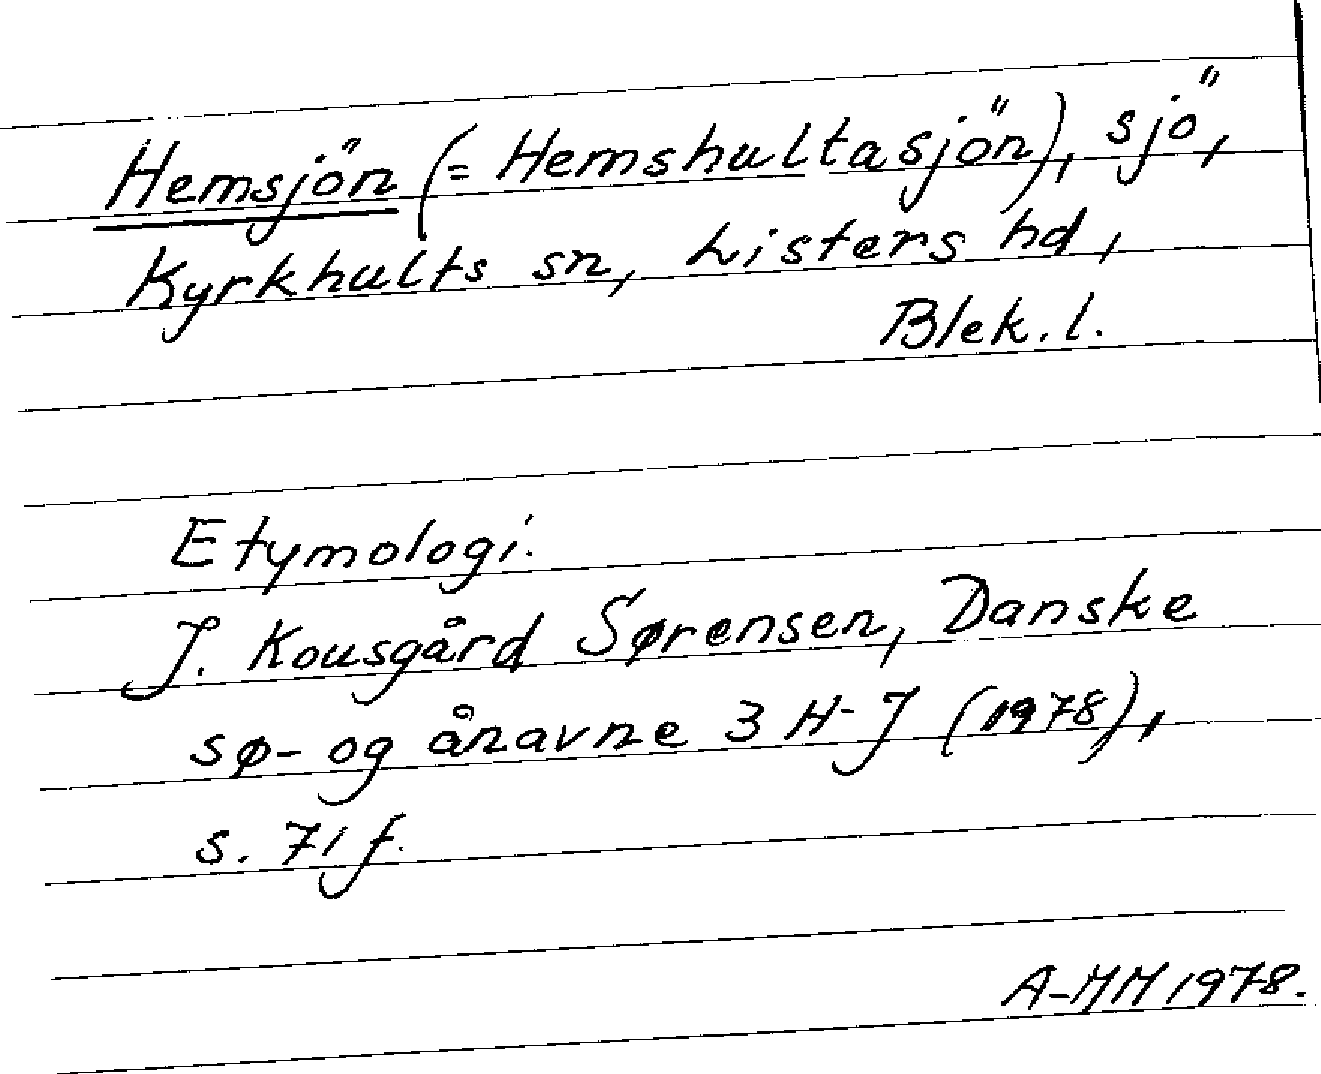 Hemsjön (= Hemshultasjön), sjö,
Kyrkhults sn, Listers hd,
Blek. l.
Etymologi.
J. Kousgård Sørensen, Danske
sø- og ånavne 3 H-J (1978),
s. 71 f.
A-MM 1978.